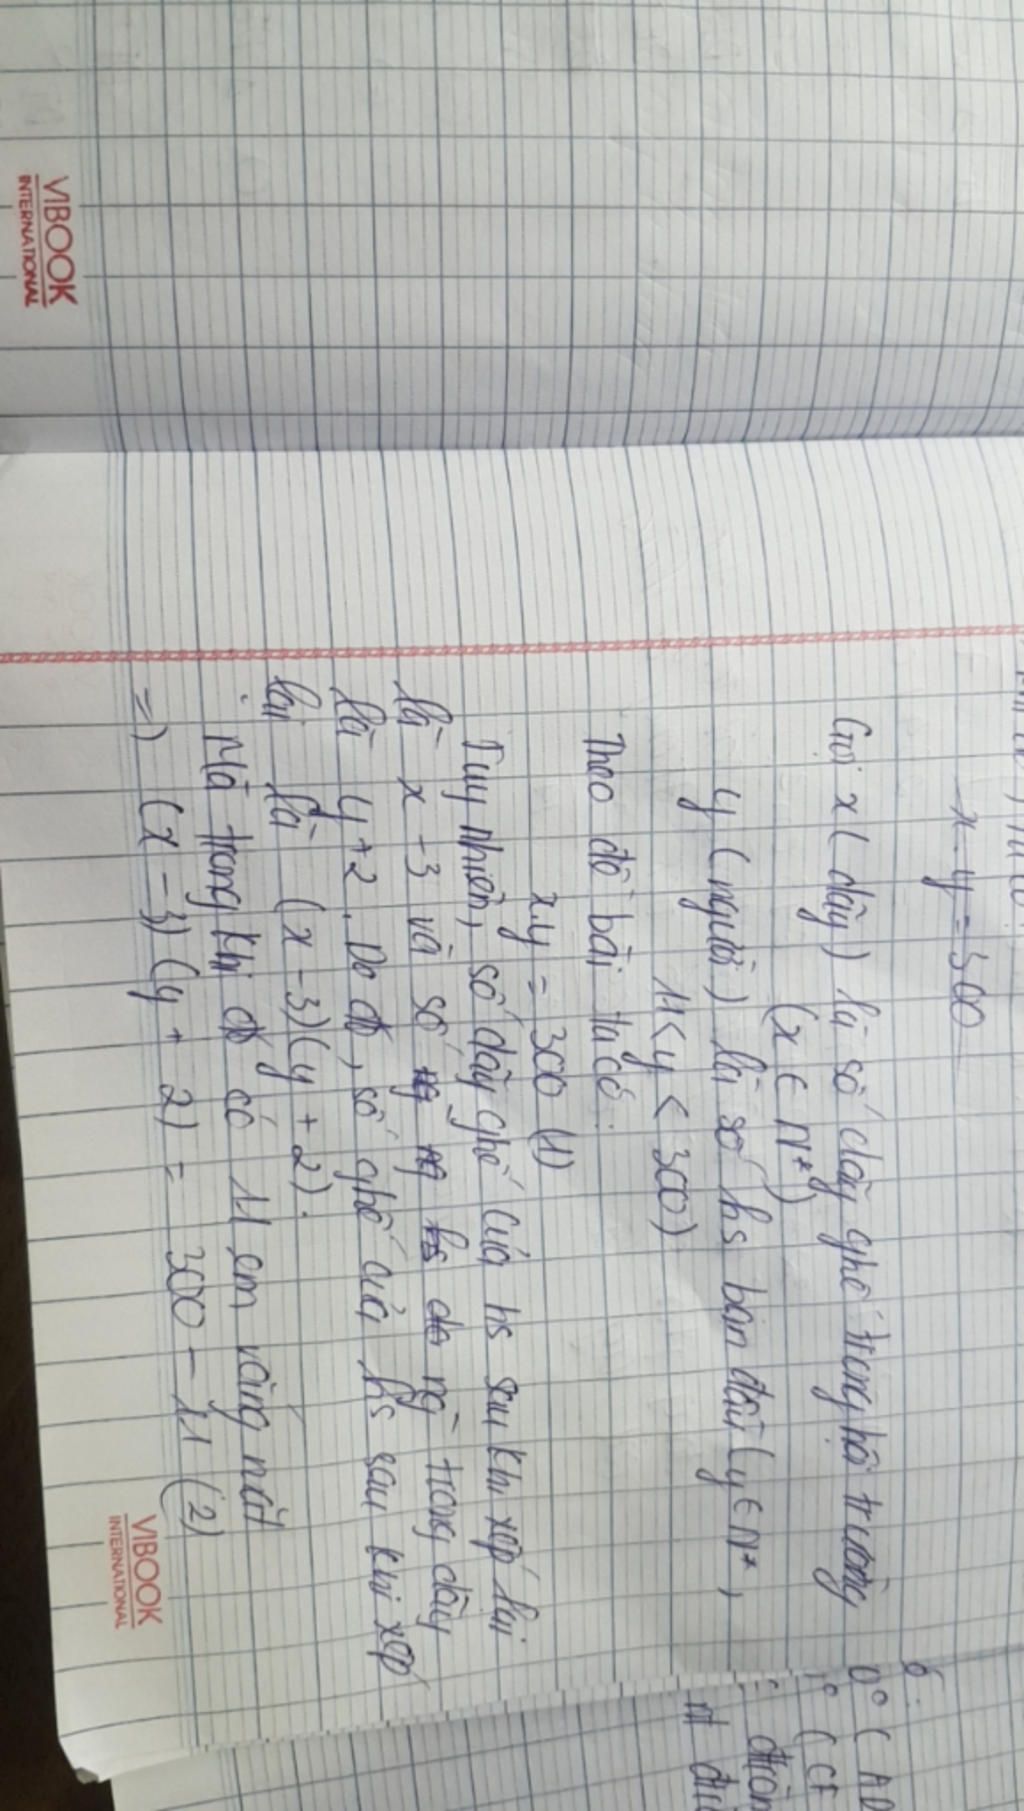 x.y = 300
Gọi x (dãy) là số dãy ghế trong hội trường
(x ∈ N*)
y (người) là số hs ban đầu (y ∈ N*,
11 < y < 300)
Theo đề bài ta có:
x.y = 300 (1)
Tuy nhiên, số dãy ghế của hs sau khi xếp lại
là x - 3 và số hs ngồi trong dãy
là y + 2. Do đó, số ghế của hs sau khi xếp
lại là (x - 3)(y + 2).
Mà trong khi đó có 11 em vắng mặt
=) (x - 3)(y + 2) = 300 - 11 (2)
VIBOOK
INTERNATIONAL
VIBOOK
INTERNATIONAL